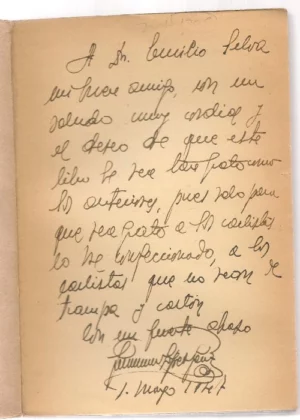 A D. Emilio Selva
mi buen amigo, con un
saludo muy cordial y
el deseo de que este
libro le sea tan grato como
los anteriores, pues solo para
que sea grato a los carlistas
lo he confeccionado, a los
carlistas que no sean de
trampa y cartón
Con un fuerte abrazo
1. Mayo